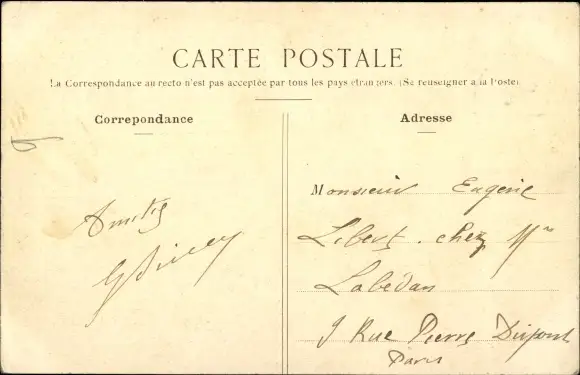 CARTE POSTALE
La Correspondance au recto n'est pas acceptée par tous les pays étrangers. (Se renseigner à la Poste)
Correpondance
Adresse
Amitiés
Monsieur Eugène
Libert. chez Mme
Labédan
9 Rue Pierre Dupont
Paris